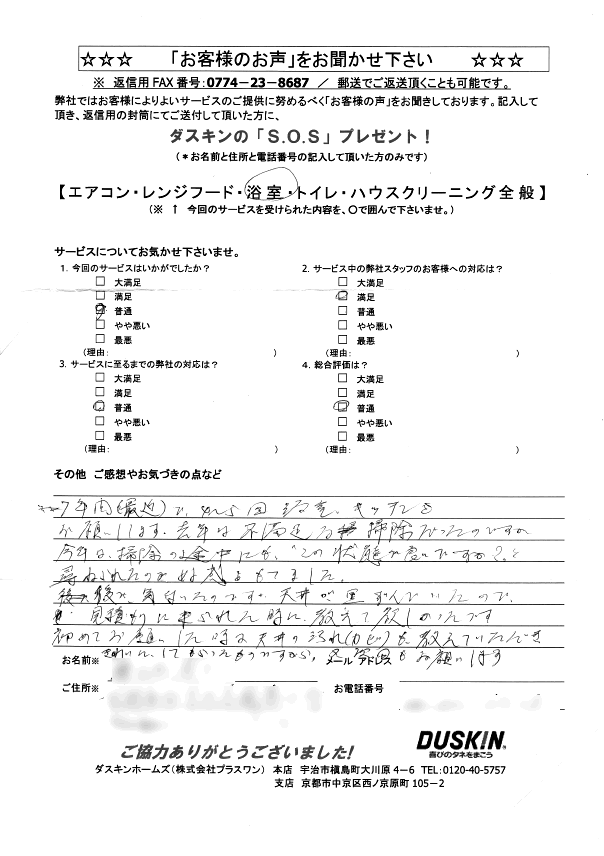 ☆☆☆ 「お客様のお声」をお聞かせ下さい ☆☆☆
※ 返信用FAX番号:0774-23-8687 / 郵送でご返送頂くことも可能です。
弊社ではお客様によりよいサービスのご提供に努めるべく「お客様の声」をお聞きしております。記入して
頂き、返信用の封筒にてご送付して頂いた方に、
ダスキンの「S.O.S」プレゼント!
(*お名前と住所と電話番号の記入して頂いた方のみです)
【エアコン・レンジフード・浴室・トイレ・ハウスクリーニング全般】
(※ ↑ 今回のサービスを受けられた内容を、〇で囲んで下さいませ。)
サービスについてお気かせ下さいませ。
1. 今回のサービスはいかがでしたか?
□ 大満足
□ 満足
□ 普通
□ やや悪い
□ 最悪
(理由: )
2. サービス中の弊社スタッフのお客様への対応は?
□ 大満足
□ 満足
□ 普通
□ やや悪い
□ 最悪
(理由: )
3. サービスに至るまでの弊社の対応は?
□ 大満足
□ 満足
□ 普通
□ やや悪い
□ 最悪
(理由: )
4. 総合評価は?
□ 大満足
□ 満足
□ 普通
□ やや悪い
□ 最悪
(理由: )
その他 ご感想やお気づきの点など
7年間(最近)で、 回 キッチンを
お願いします。去年は不満足な掃除だったのですが
今年は、掃除の途中にも、"この状態で良いですか?"と
尋ねられたので もてました。
後で、気付いたのですが 天井が黒ずんでいたので、
見積りに来られた時に、教えて欲しかったです
初めてお願いした時は天井の汚れ(カビ)も教えていただき
きれいにしてもらったものですから、 お願いします
お名前※
メールアドレス
ご住所※
お電話番号
ご協力ありがとうございました!
DUSKIN
喜びのタネをまこう
ダスキンホームズ(株式会社プラスワン) 本店 宇治市槇島町大川原4-6 TEL:0120-40-5757
支店 京都市中京区西ノ京原町105-2